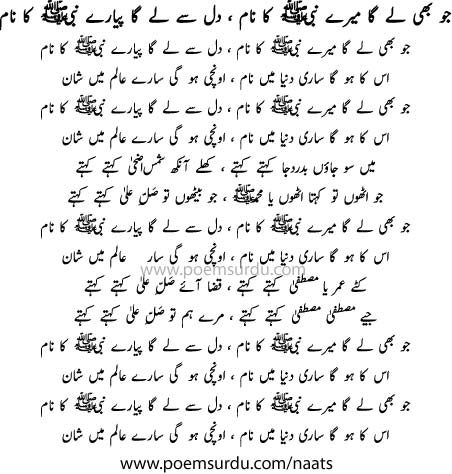 جو بھی لے گا میرے نبیﷺ کا نام ، دل سے لے گا پیارے نبیﷺ کا نام
جو بھی لے گا میرے نبیﷺ کا نام ، دل سے لے گا پیارے نبیﷺ کا نام
اس کا ہو گا ساری دنیا میں نام ، اونچی ہو گی سارے عالم میں شان
جو بھی لے گا میرے نبیﷺ کا نام ، دل سے لے گا پیارے نبیﷺ کا نام
اس کا ہو گا ساری دنیا میں نام ، اونچی ہو گی سارے عالم میں شان
میں سو جاؤں بدردجا کہتے کہتے ، کھلے آنکھ شمس اضحیٰ کہتے کہتے
جو اٹھوں تو کہتا اٹھوں یا محمدﷺ ، جو بیٹھوں تو صَلِ علیٰ کہتے کہتے
جو بھی لے گا میرے نبیﷺ کا نام ، دل سے لے گا پیارے نبیﷺ کا نام
اس کا ہو گا ساری دنیا میں نام ، اونچی ہو گی سار عالم میں شان
www.poemsurdu.com
کٹے عمر یا مصطفیٰ کہتے کہتے ، قضا آئے صَلِ علیٰ کہتے کہتے
جیے مصطفیٰ مصطفیٰ کہتے کہتے ، مرے ہم تو صَلِ علیٰ کہتے کہتے
جو بھی لے گا میرے نبیﷺ کا نام ، دل سے لے گا پیارے نبیﷺ کا نام
اس کا ہو گا ساری دنیا میں نام ، اونچی ہو گی سارے عالم میں شان
جو بھی لے گا میرے نبیﷺ کا نام ، دل سے لے گا پیارے نبیﷺ کا نام
اس کا ہو گا ساری دنیا میں نام ، اونچی ہو گی سارے عالم میں شان
www.poemsurdu.com/naats